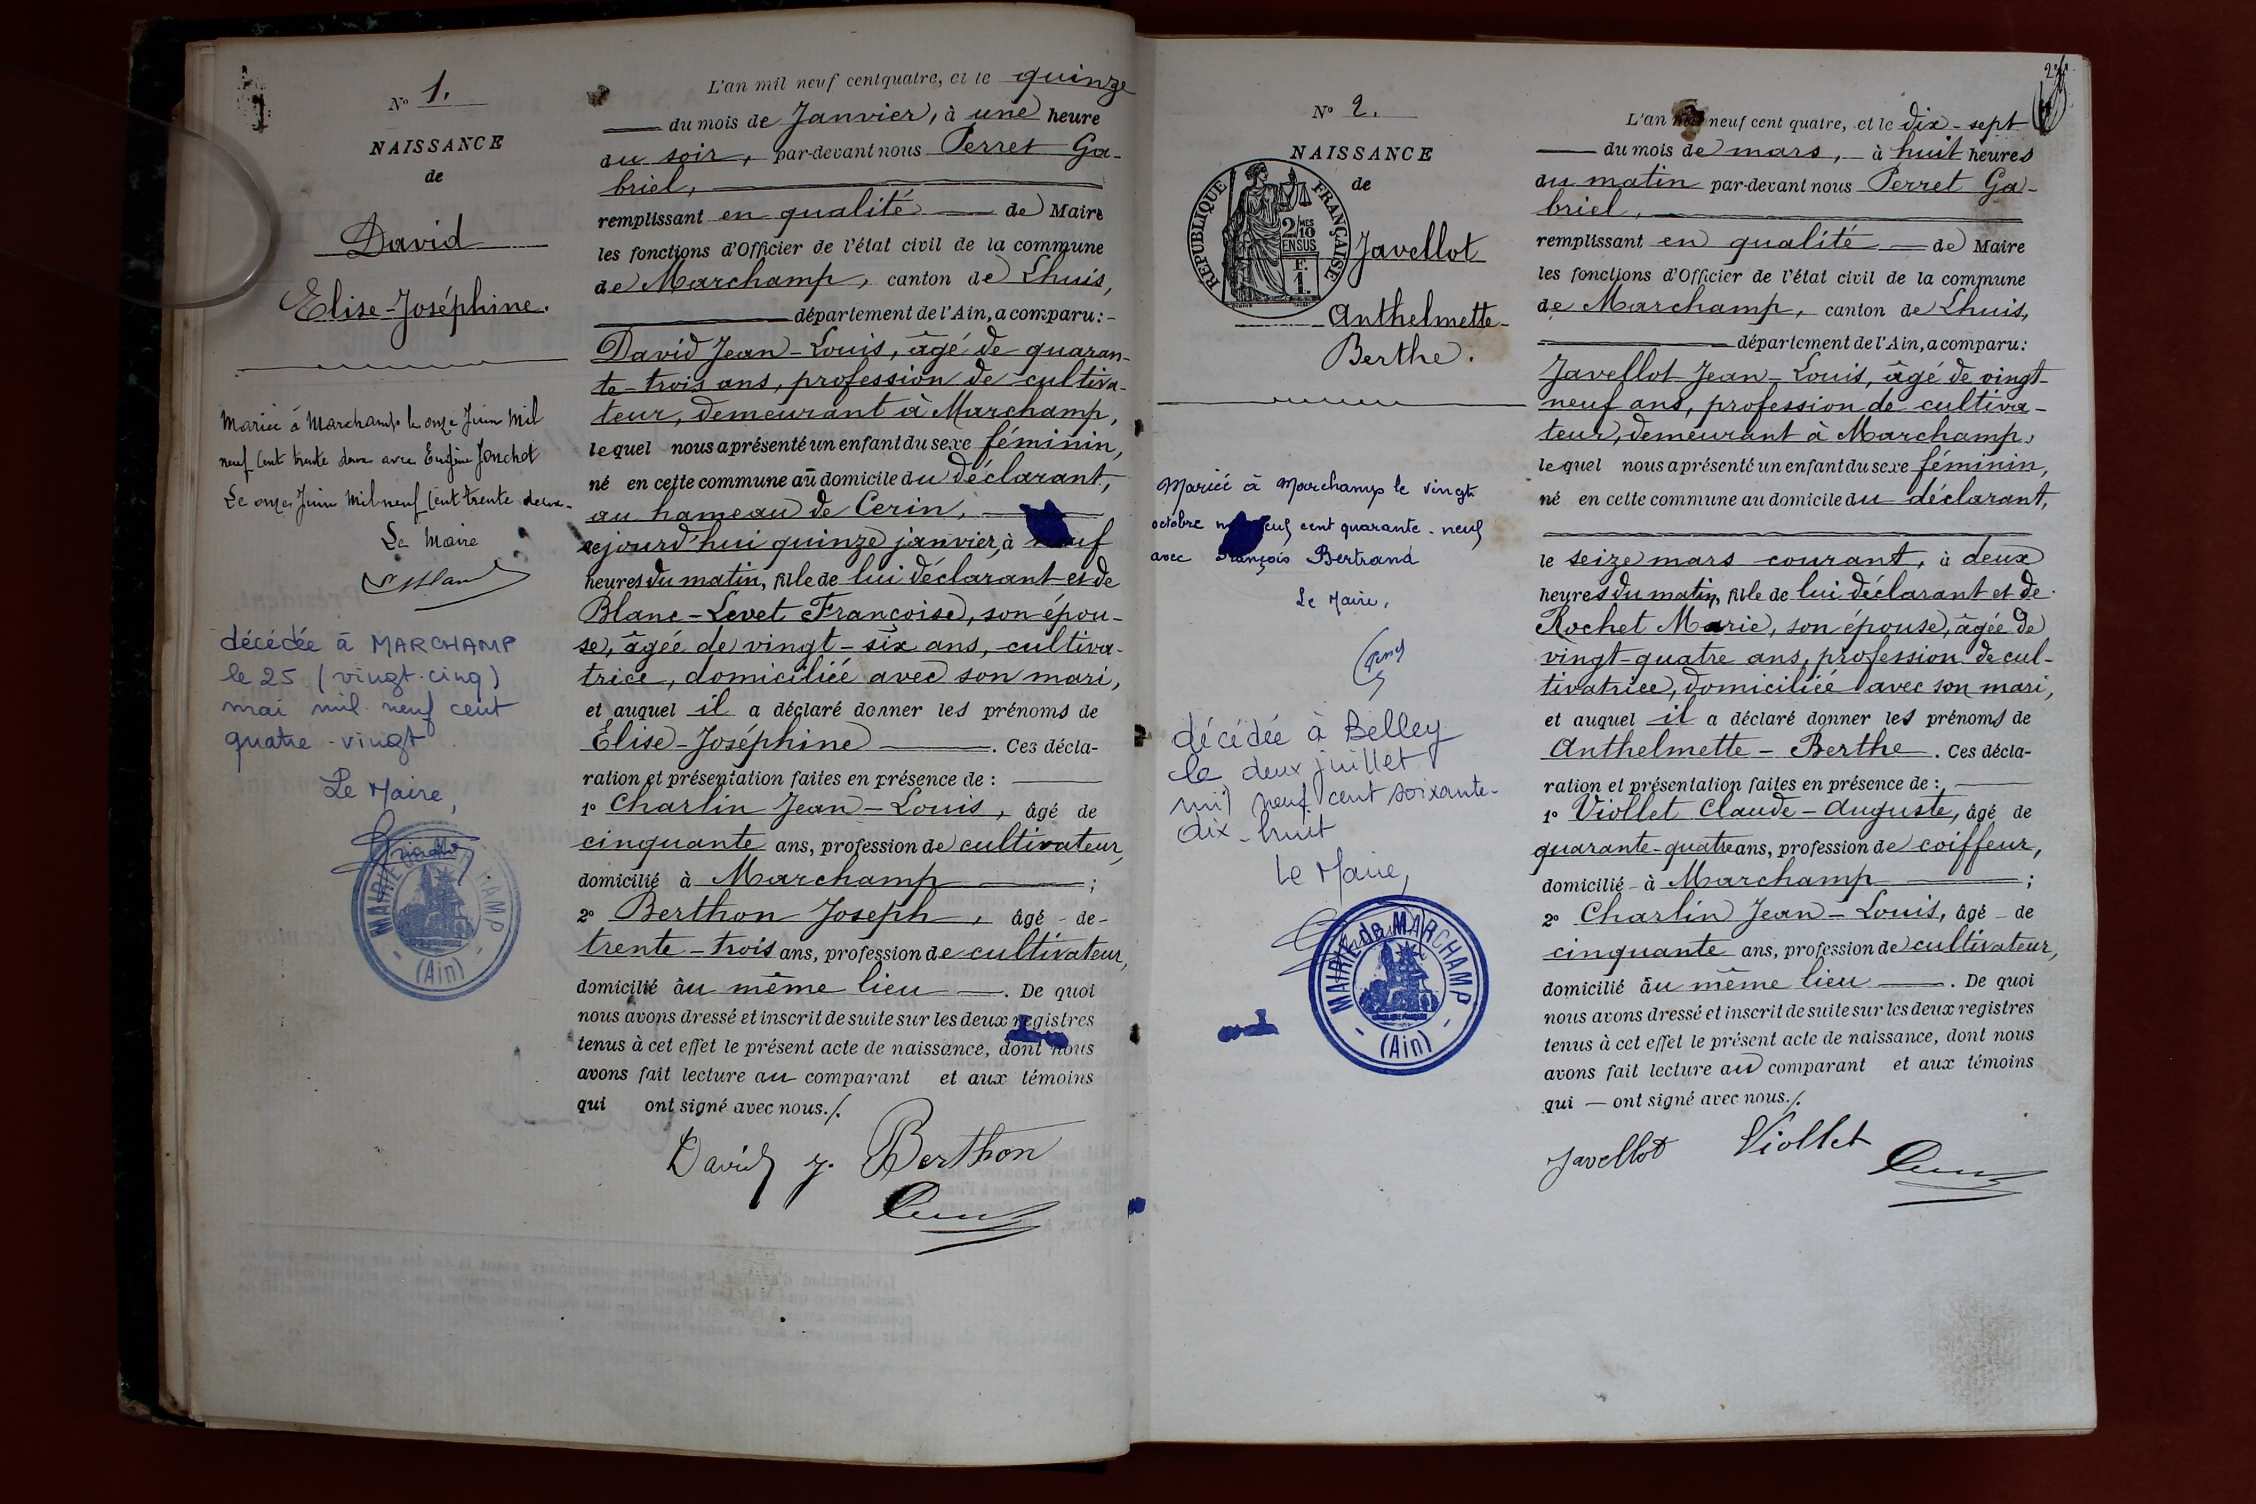 N° 1.
NAISSANCE
de
David
Elise-Joséphine.
Mariée à Marchamp le onze Juin Mil
neuf Cent trente deux avec Eugène Jonchot
Le onze Juin Mil neuf Cent trente deux.
Le Maire
décédée à MARCHAMP
le 25 (vingt-cinq)
mai mil neuf cent
quatre-vingt
Le Maire,
MAIRIE MARCHAMP
(Ain)
L'an mil neuf cent quatre, et le quinze
du mois de Janvier, à une heure
du soir, par-devant nous Perret Ga-
briel,
remplissant en qualité de Maire
les fonctions d'Officier de l'état civil de la commune
de Marchamp, canton de Lhuis,
département de l'Ain, a comparu :
David Jean-Louis, âgé de quaran-
te-trois ans, profession de cultiva-
teur, demeurant à Marchamp,
lequel nous a présenté un enfant du sexe féminin,
né en cette commune au domicile du déclarant,
au hameau de Cerin,
cejourd'hui quinze janvier, à neuf
heures du matin, fille de lui déclarant et de
Blanc-Levet Françoise, son épou-
se, âgée de vingt-six ans, cultiva-
trice, domiciliée avec son mari,
et auquel il a déclaré donner les prénoms de
Elise-Joséphine . Ces décla-
ration et présentation faites en présence de :
1° Charlin Jean-Louis, âgé de
cinquante ans, profession de cultivateur,
domicilié à Marchamp ;
2° Berthon Joseph, âgé de
trente-trois ans, profession de cultivateur,
domicilié au même lieu . De quoi
nous avons dressé et inscrit de suite sur les deux registres
tenus à cet effet le présent acte de naissance, dont nous
avons fait lecture au comparant et aux témoins
qui ont signé avec nous./.
David J. Berthon
N° 2.
NAISSANCE
de
REPUBLIQUE FRANÇAISE
2/10 MES
EN SUS
F.
1.
Javellot
Anthelmette-
Berthe.
Mariée à Marchamp le vingt
octobre neuf cent quarante-neuf
avec François Bertrand
Le Maire,
décédée à Belley
le deux juillet
mil neuf cent soixante-
dix-huit
Le Maire,
MAIRIE de MARCHAMP
(Ain)
L'an neuf cent quatre, et le dix-sept
du mois de mars, à huit heures
du matin par-devant nous Perret Ga-
briel,
remplissant en qualité de Maire
les fonctions d'Officier de l'état civil de la commune
de Marchamp, canton de Lhuis,
département de l'Ain, a comparu :
Javellot Jean-Louis, âgé de vingt-
neuf ans, profession de cultiva-
teur, demeurant à Marchamp,
lequel nous a présenté un enfant du sexe féminin,
né en cette commune au domicile du déclarant,
le seize mars courant, à deux
heures du matin, fille de lui déclarant et de
Rochet Marie, son épouse, âgée de
vingt-quatre ans, profession de cul-
tivatrice, domiciliée avec son mari,
et auquel il a déclaré donner les prénoms de
Anthelmette-Berthe . Ces décla-
ration et présentation faites en présence de :
1° Viollet Claude-Auguste, âgé de
quarante-quatre ans, profession de coiffeur,
domicilié à Marchamp ;
2° Charlin Jean-Louis, âgé de
cinquante ans, profession de cultivateur,
domicilié au même lieu . De quoi
nous avons dressé et inscrit de suite sur les deux registres
tenus à cet effet le présent acte de naissance, dont nous
avons fait lecture au comparant et aux témoins
qui ont signé avec nous./.
Javellot Viollet